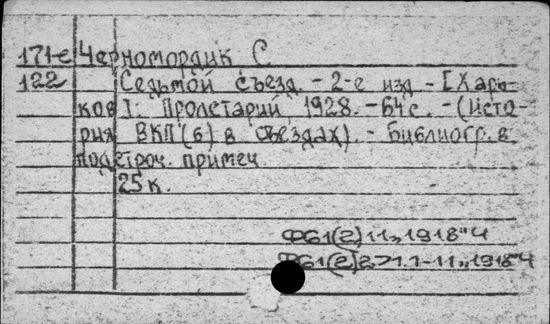 171-е Черномордик С
122 Седьмой съезд. - 2-е изд - [Харь-
ков]: Пролетарий, 1928. - 64 с. - (Исто-
рия ВКП(б) в съездах). - Библиогр. в
подстроч. примеч
25 к.
ФБ1(2)11„1918"Ч
ФБ1(2)271.1-11„1918"Ч